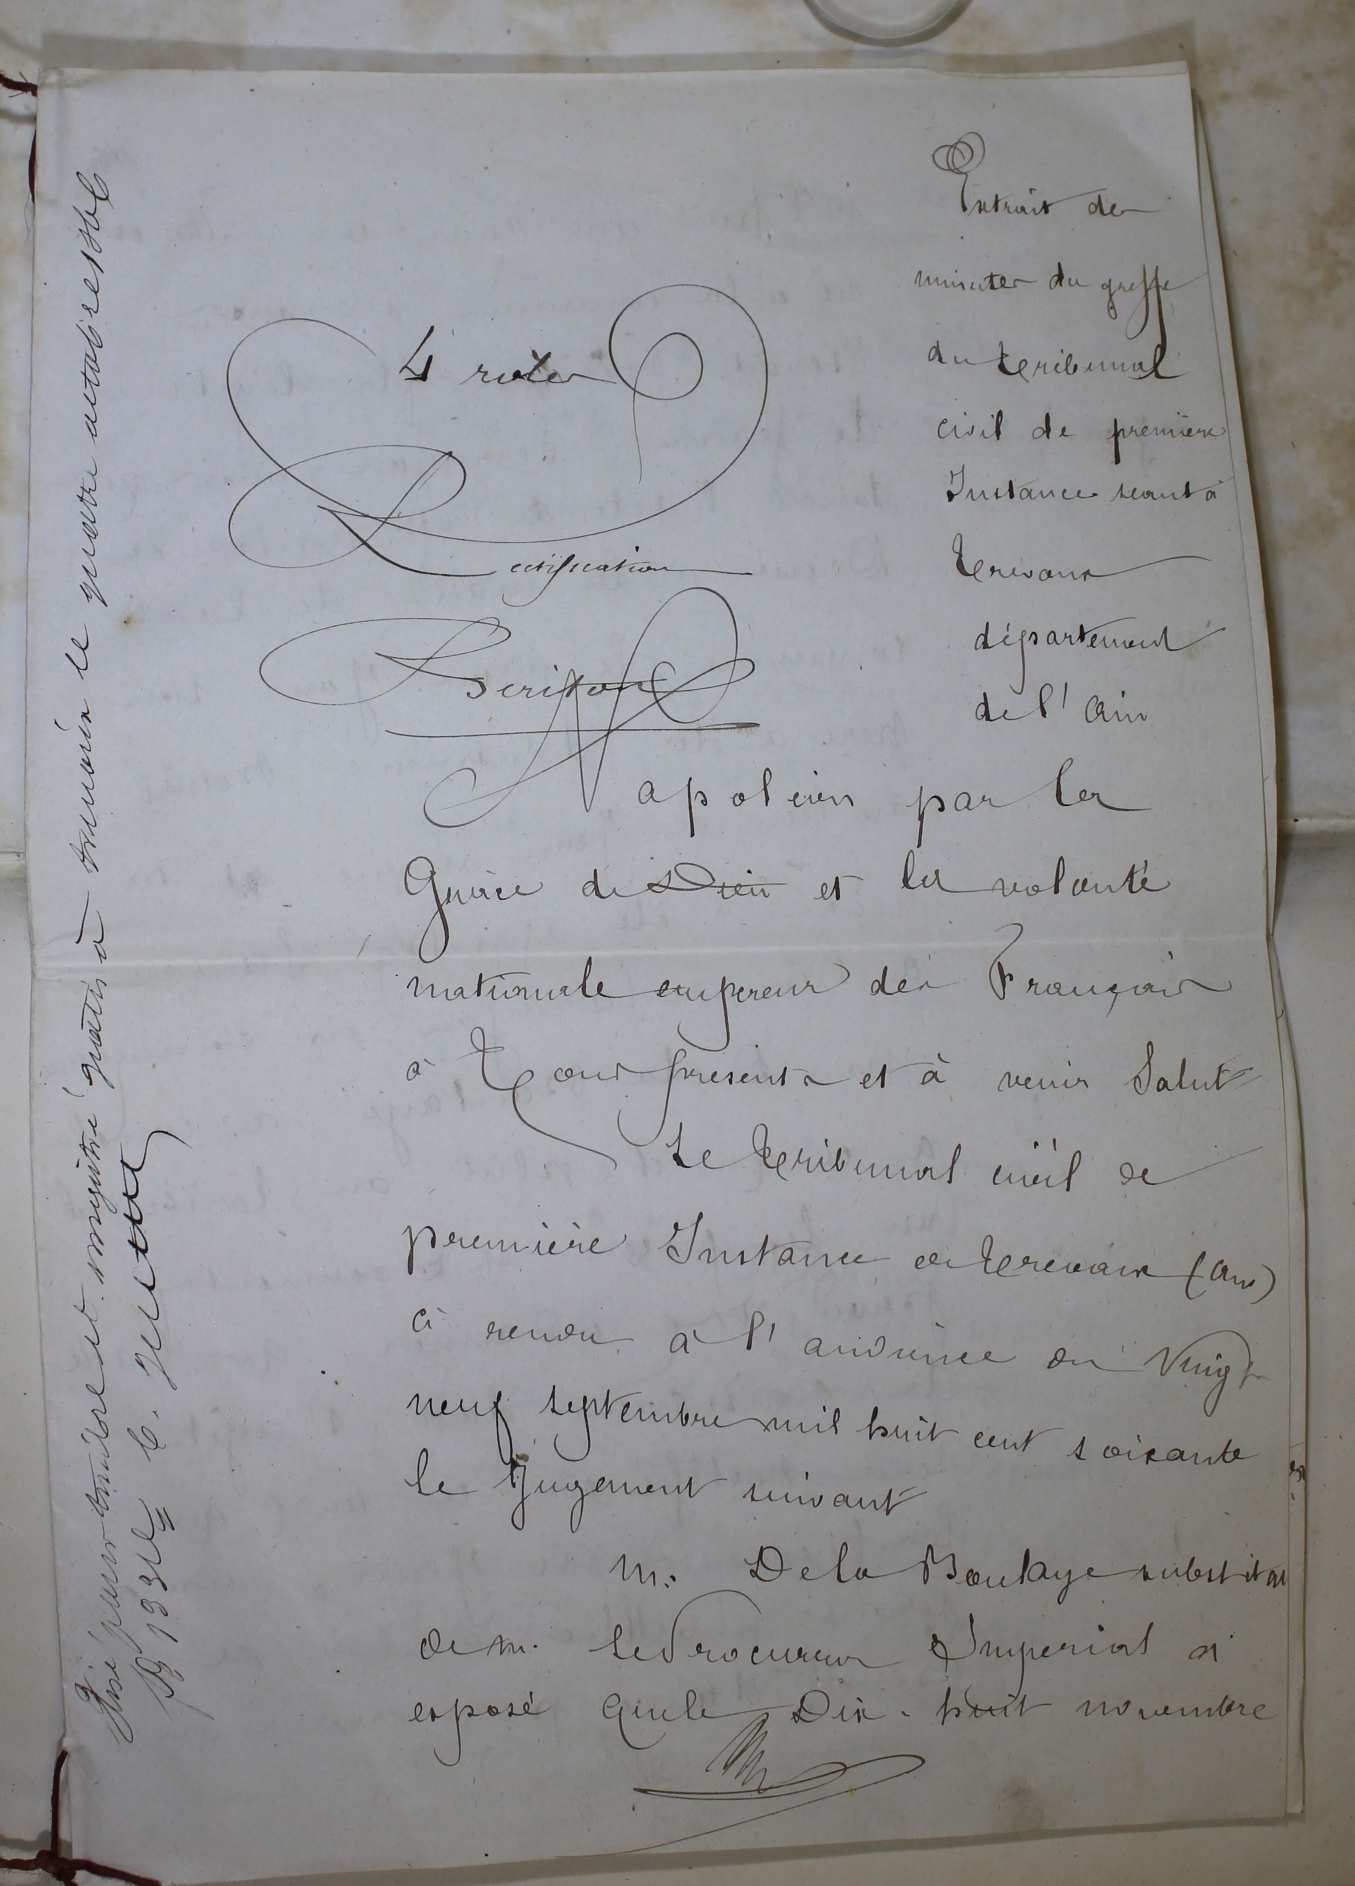 Extrait des
minutes du greffe
du Tribunal
civil de première
Instance séant à
Trevoux
département
de l'Ain
4 roles
Rectification
Napoléon par la
Grâce de Dieu et la volonté
nationale empereur des Français
à Tous présents et à venir Salut
Le Tribunal civil de
première Instance de Trevoux (Ain)
à rendu à l'audience du Vingt
neuf septembre mil huit cent soixante
le Jugement suivant
M. De la Boulaye substitut
de M. le Procureur Impérial a
exposé que le Dix-huit novembre
Visé pour timbre et enregistré gratis à le quatre octobre 1860